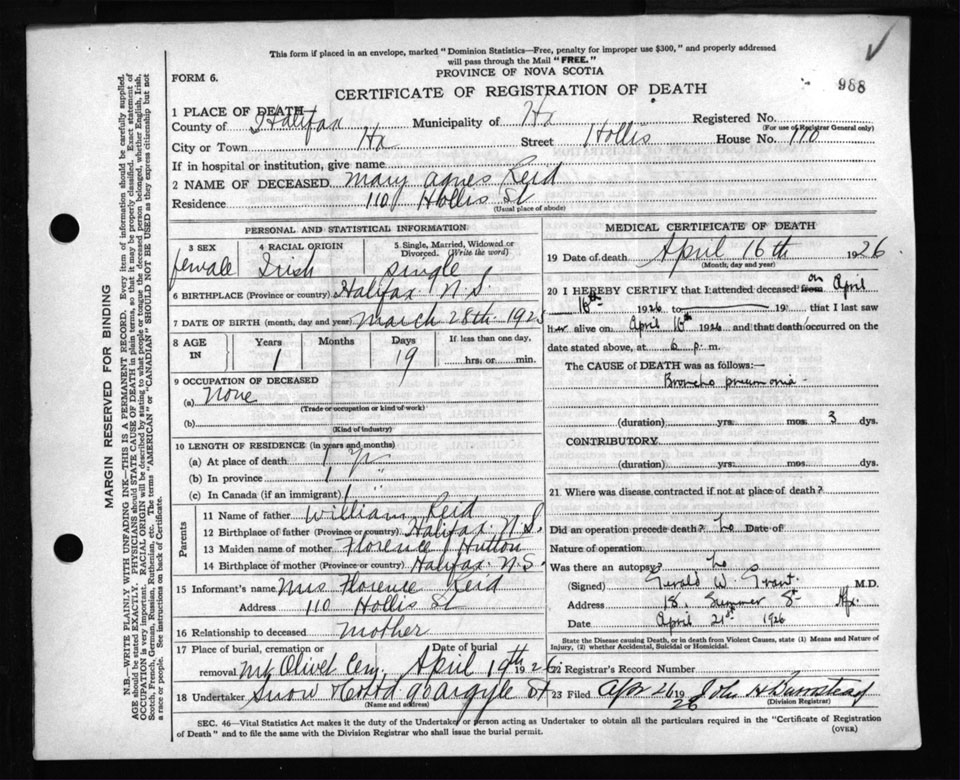 This form if placed in an envelope, marked "Dominion Statistics—Free, penalty for improper use $300," and properly addressed
will pass through the Mail "FREE."
PROVINCE OF NOVA SCOTIA
FORM 6.
CERTIFICATE OF REGISTRATION OF DEATH
988
MARGIN RESERVED FOR BINDING
N.B.—WRITE PLAINLY WITH UNFADING INK—THIS IS A PERMANENT RECORD. Every item of information should be carefully supplied.
AGE should be stated EXACTLY. PHYSICIANS should STATE CAUSE OF DEATH in plain terms, so that it may be properly classified. Exact statement of
OCCUPATION is very important. RACIAL ORIGIN will be described by stating to what people or tongue the deceased person belonged, whether English, Irish,
Scotch, French, German, Russian, Ruthenian, etc. The terms "AMERICAN" or "CANADIAN" SHOULD NOT BE USED as they express citizenship but not
a race or people. See instructions on back of Certificate.
1 PLACE OF DEATH
County of Halifax Municipality of Hx Registered No.
(For use of Registrar General only)
City or Town Hx Street Hollis House No. 110
If in hospital or institution, give name
2 NAME OF DECEASED Mary Agnes Reid
Residence 110 Hollis St
(Usual place of abode)
PERSONAL AND STATISTICAL INFORMATION
3 SEX 4 RACIAL ORIGIN 5 Single, Married, Widowed or
Divorced. (Write the word)
female Irish single
6 BIRTHPLACE (Province or country) Halifax N.S.
7 DATE OF BIRTH (month, day and year) March 28th 1925
8 AGE IN Years Months Days If less than one day,
1 19 hrs. or min.
9 OCCUPATION OF DECEASED
(a) None
(Trade or occupation or kind of work)
(b)
(Kind of industry)
10 LENGTH OF RESIDENCE (in years and months)
(a) At place of death 1 yr
(b) In province 1 "
(c) In Canada (if an immigrant) 1 "
Parents
11 Name of father William Reid
12 Birthplace of father (Province or country) Halifax N.S.
13 Maiden name of mother Florence J Hutton
14 Birthplace of mother (Province or country) Halifax N.S.
15 Informant's name Mrs Florence Reid
Address 110 Hollis St
16 Relationship to deceased Mother
17 Place of burial, cremation or Date of burial
removal Mt Olivet Cem. April 19th 1926
18 Undertaker Snow 90 Argyle St
(Name and address)
MEDICAL CERTIFICATE OF DEATH
19 Date of death April 16th 1926
(Month, day and year)
20 I HEREBY CERTIFY that I attended deceased from on April
16th 1926 to 19 that I last saw
her alive on April 16th 1926 and that death occurred on the
date stated above, at 6 p. m.
The CAUSE of DEATH was as follows:—
Broncho pneumonia
(duration) yrs. mos. 3 dys.
CONTRIBUTORY
(duration) yrs. mos. dys.
21 Where was disease contracted if not at place of death?
Did an operation precede death? no Date of
Nature of operation
Was there an autopsy? no
(Signed) Gerald W. Grant M.D.
Address 18 Summer St Hfx.
Date April 21st 1926
State the Disease causing Death, or in death from Violent Causes, state (1) Means and Nature of
Injury, (2) whether Accidental, Suicidal or Homicidal.
22 Registrar's Record Number
23 Filed Apr 26 1926 John H Barnstead
(Division Registrar)
SEC. 46—Vital Statistics Act makes it the duty of the Undertaker or person acting as Undertaker to obtain all the particulars required in the "Certificate of Registration
of Death" and to file the same with the Division Registrar who shall issue the burial permit.
(OVER)